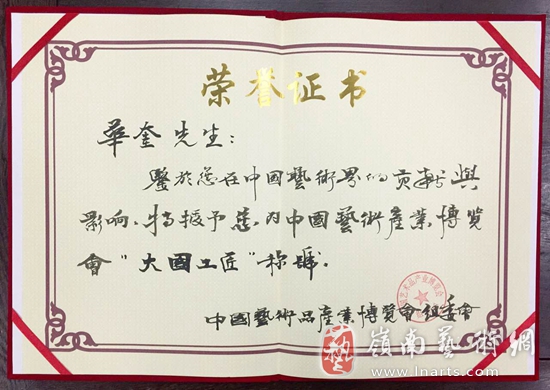 荣誉证书
華奎先生：
鑒於您在中國藝術界的贡献與
影响、特授予您为中國藝術產業博覽
會“大國工匠”称號。
中國藝術品產業博覽會组委會
嶺南藝術網
www.lnarts.com